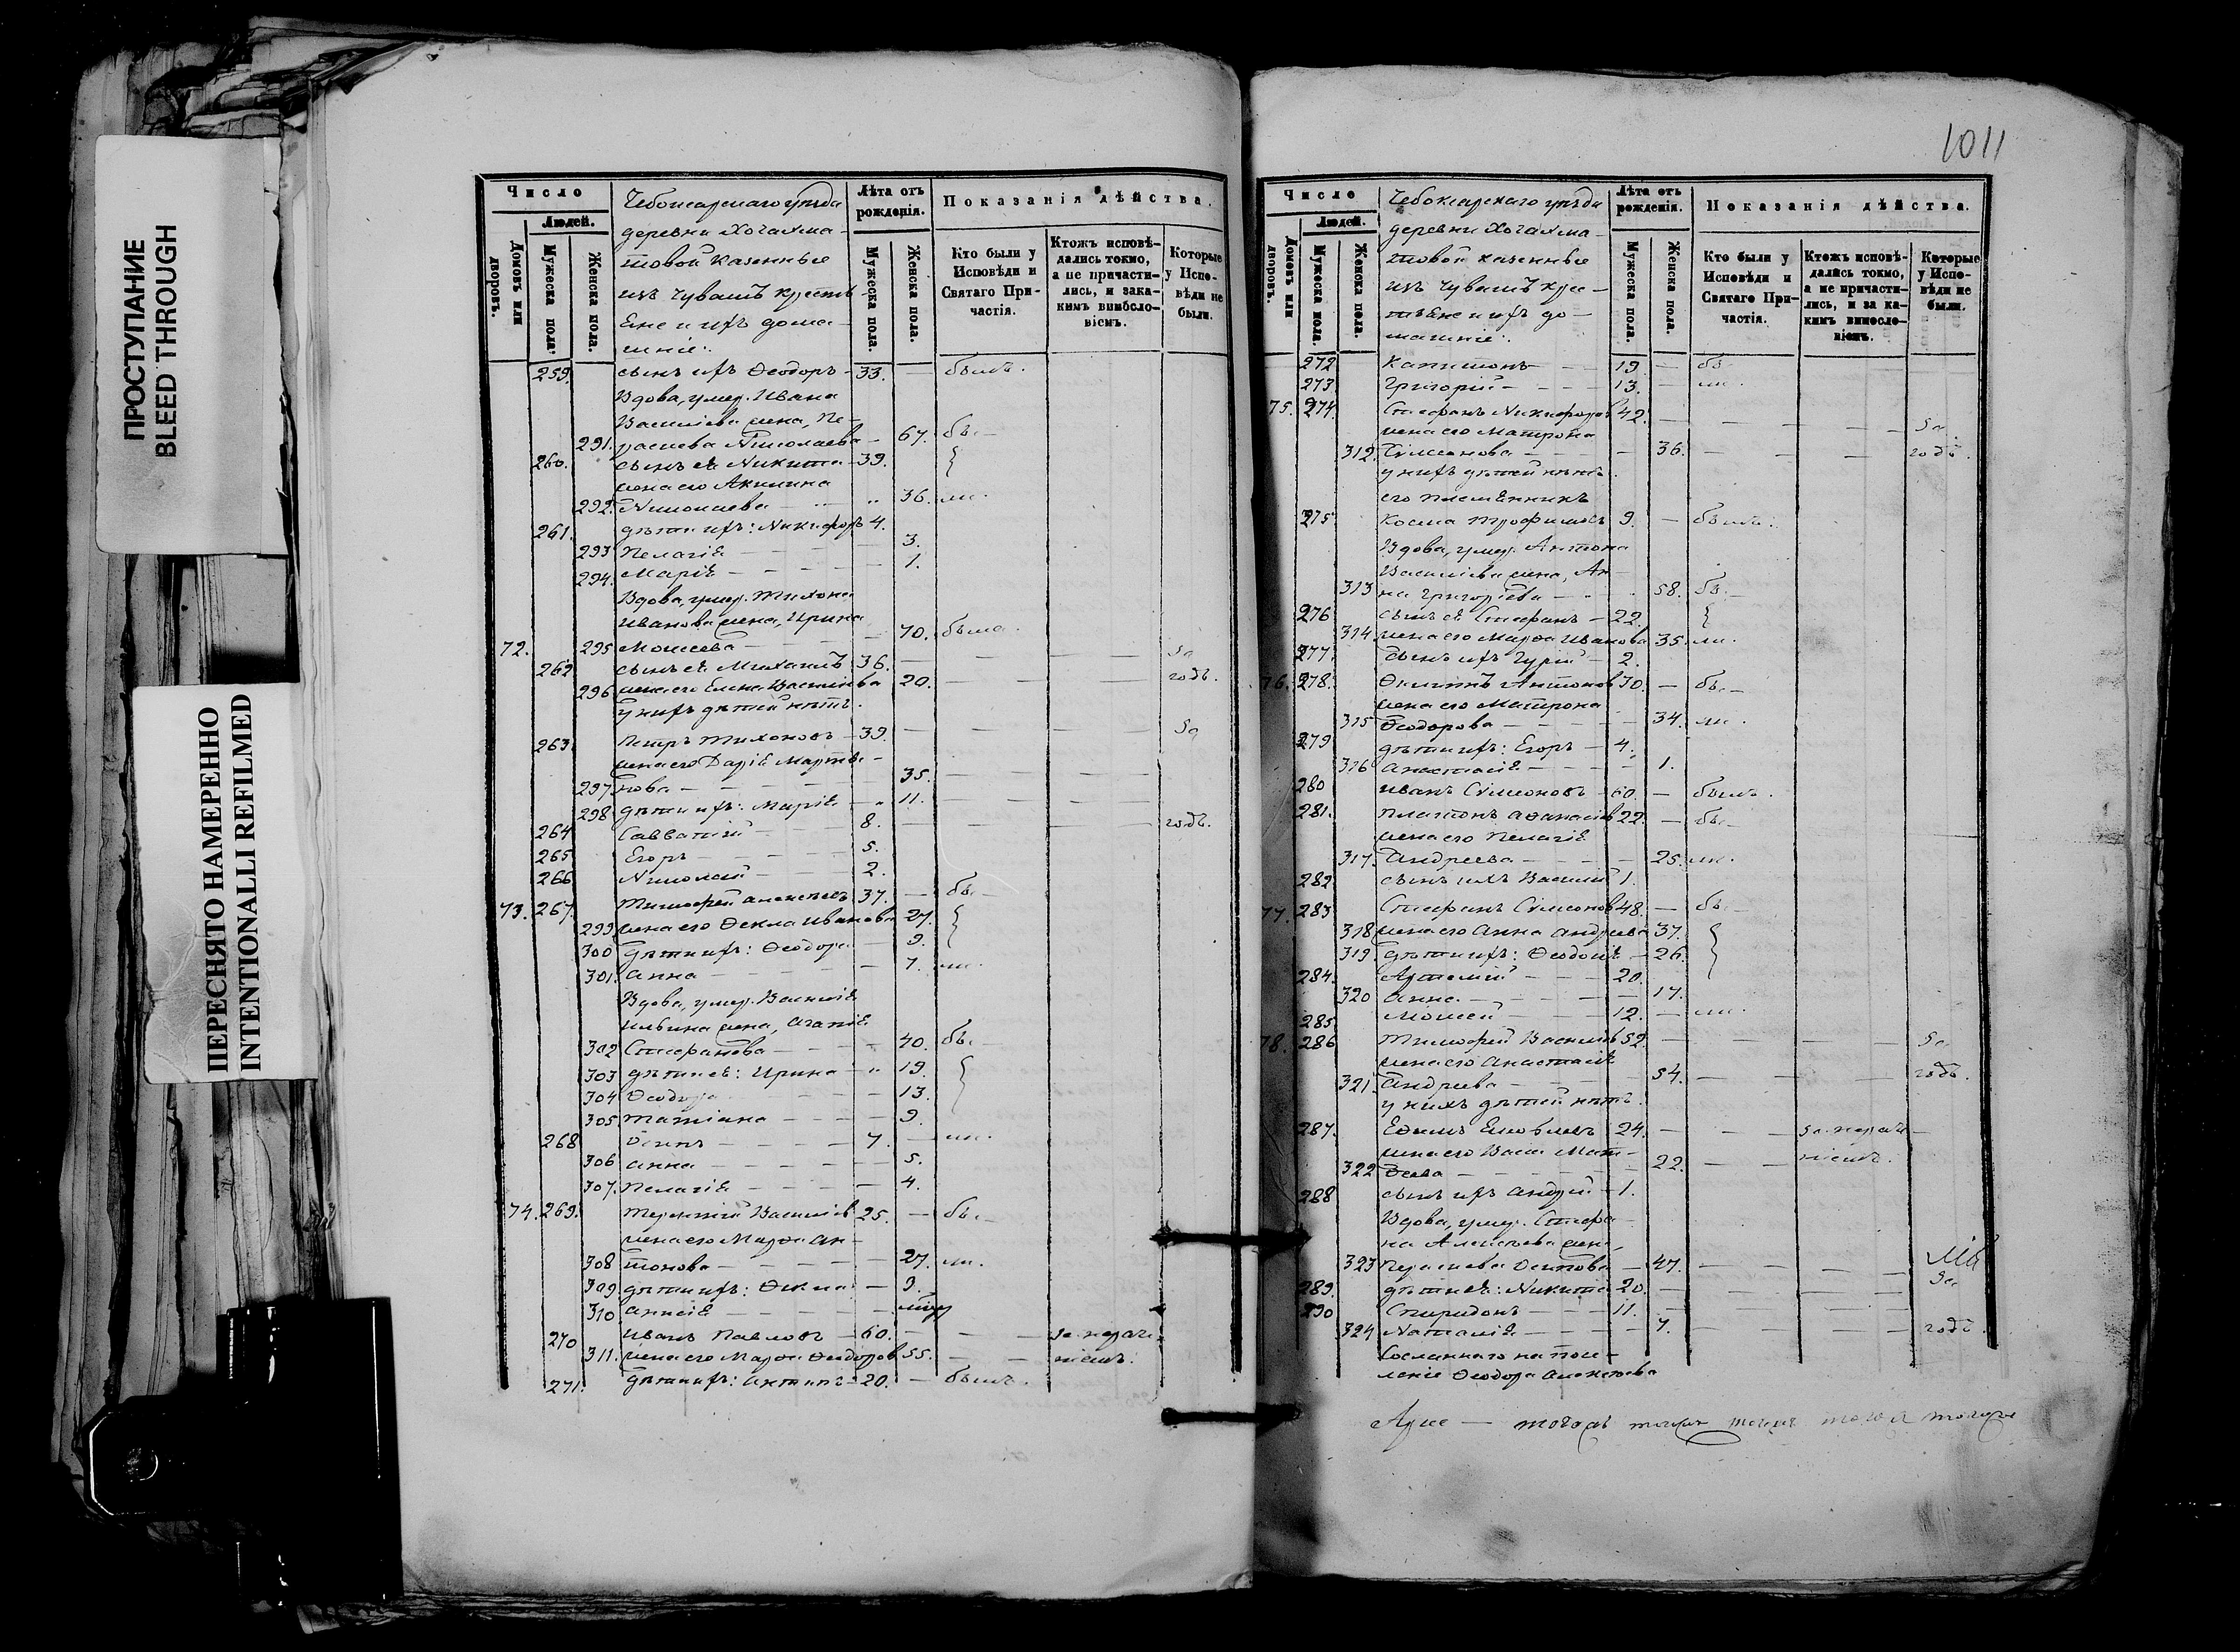 ПРОСТУПАНИЕ
BLEED THROUGH
ПЕРЕСНЯТО НАМЕРЕННО
INTENTIONALLI REFILMED
Число
Людей.
Домовъ или дворовъ.
Мужеска пола.
Женска пола.
Чебоксарскаго уѣзда
деревни Хочахма-
товой казенные
изъ Чувашъ крестъ-
яне и ихъ дома-
шніе:
Лѣта отъ рожденія.
Мужеска пола.
Женска пола.
Показанія дѣйства.
Кто были у Исповѣди и Святаго При-частія.
Ктожъ исповѣ-дались токмо, а не причасти-лись, и зака-кимъ винбсло-віемъ.
Которые у Испо-вѣди не были.
259. сынъ ихъ Ѳеодоръ - 33. — былъ.
Вдова, умер. Ивана
Васильева жена, Пе-
291. раскева Николаева - 67. бы-
260. сынъ ея Никита - 39.
жена его Акилина
292. Николаева - 36. ли.
261. дѣти ихъ: Никифоръ 4.
293 Пелагія - 3.
294. Марія - 1.
Вдова, умер. Тихона
Иванова жена, Ирина
72. 295 Моисеева - 70. была.
262 сынъ ея Михаилъ 36. — за
296 жена его Елена Васильева 20. — годъ.
у нихъ дѣтей нѣтъ.
263. Петръ Тихоновъ - 39. — за
жена его Дарія Марты-
297 нова - 35.
298 дѣти ихъ: Марія - 11.
264 Савватій - 8. — годъ.
265 Егоръ - 5.
266 Николай - 2.
73. 267. Тимофей Алексѣевъ 37. — бы-
299. жена его Ѳекла Иванова 27.
300 дѣти ихъ: Ѳеодора - 9.
301. Анна - 7. ли.
Вдова, умер. Василія
Ильина жена, Агапія
302 Стефанова - 40. бы-
303 дѣти ея: Ирина - 19.
304 Ѳеодора - 13.
305 Татіана - 9.
268 Осипъ - 7. — ли.
306 Анна - 5.
307. Пелагія - 4.
74. 269. Терентій Васильевъ 25. — бы-
жена его Марѳа Ан-
308 тонова - 27. ли.
309 дѣти ихъ: Ѳекла - 9.
310 Анисія -
270 Иванъ Павловъ - 60. — за нерач-
311. жена его Марѳа Ѳеодоров 55. — ніемъ.
271. дѣти ихъ: Антипъ - 20. — былъ.
1011
Число
Людей.
Домовъ или дворовъ.
Мужеска пола.
Женска пола.
Чебоксарскаго уѣзда
деревни Хочахма-
товой казенные
изъ Чувашъ крес-
тьяне и ихъ до-
машніе:
Лѣта отъ рожденія.
Мужеска пола.
Женска пола.
Показанія дѣйства.
Кто были у Исповѣди и Святаго При-частія.
Ктожъ исповѣ-дались токмо, а не причасти-лись, и за ка-кимъ винесло-віемъ.
Которые у Испо-вѣди не были.
272 Капитонъ - 19. — бы-
273. Григорій - 13. — ли.
75. 274. Стефанъ Никифоровъ 42. — за
жена его Матрона
312. Сѵмеонова - 36. — годъ.
у нихъ дѣтей нѣтъ.
его племянникъ
275. Косма Трофимовъ 9. — былъ.
Вдова, умер. Антона
Васильева жена, Ан-
313 на Григоріева - 58. бы-
276 сынъ ея Стефанъ - 22.
314 жена его Марѳа Иванова 35. ли.
277. сынъ ихъ Гурій - 2.
76. 278. Ѳилиппъ Антонов 30. — бы-
жена его Матрона
315 Ѳеодорова - 34. ли.
279 дѣти ихъ: Егоръ - 4.
316 Анастасія - 1.
280 Иванъ Сѵмеоновъ - 60. — былъ.
281. Платонъ Аѳанасіев 22. — бы-
жена его Пелагія
317. Андреева - 25. ли.
282 сынъ ихъ Василій 1.
77. 283 Стефанъ Сѵмеонов 48. — бы-
318 жена его Анна Андреева 37.
319. дѣти ихъ: Ѳеодосія - 26.
284. Артемій - 20.
320 Анна - 17.
285. Моисей - 12. — ли.
78. 286 Тимофей Васильев 52. — за
жена его Анастасія
321. Андреева - 54. — годъ.
у нихъ дѣтей нѣтъ.
287. Еѳимъ Емовлевъ 24. — за нераче-
жена его Васса Мат-
322 ѳеева - 22. — ніемъ.
288 сынъ ихъ Андрей - 1.
Вдова, умер. Стефа-
на Алексѣева жена,
323 Параскева Осипова - 47.
289. дѣти ея: Никита 20. — за
290 Спиридонъ - 11.
324 Наталія - 7. — годъ.
Сосланнаго на посе-
леніе Ѳеодора Алексѣева